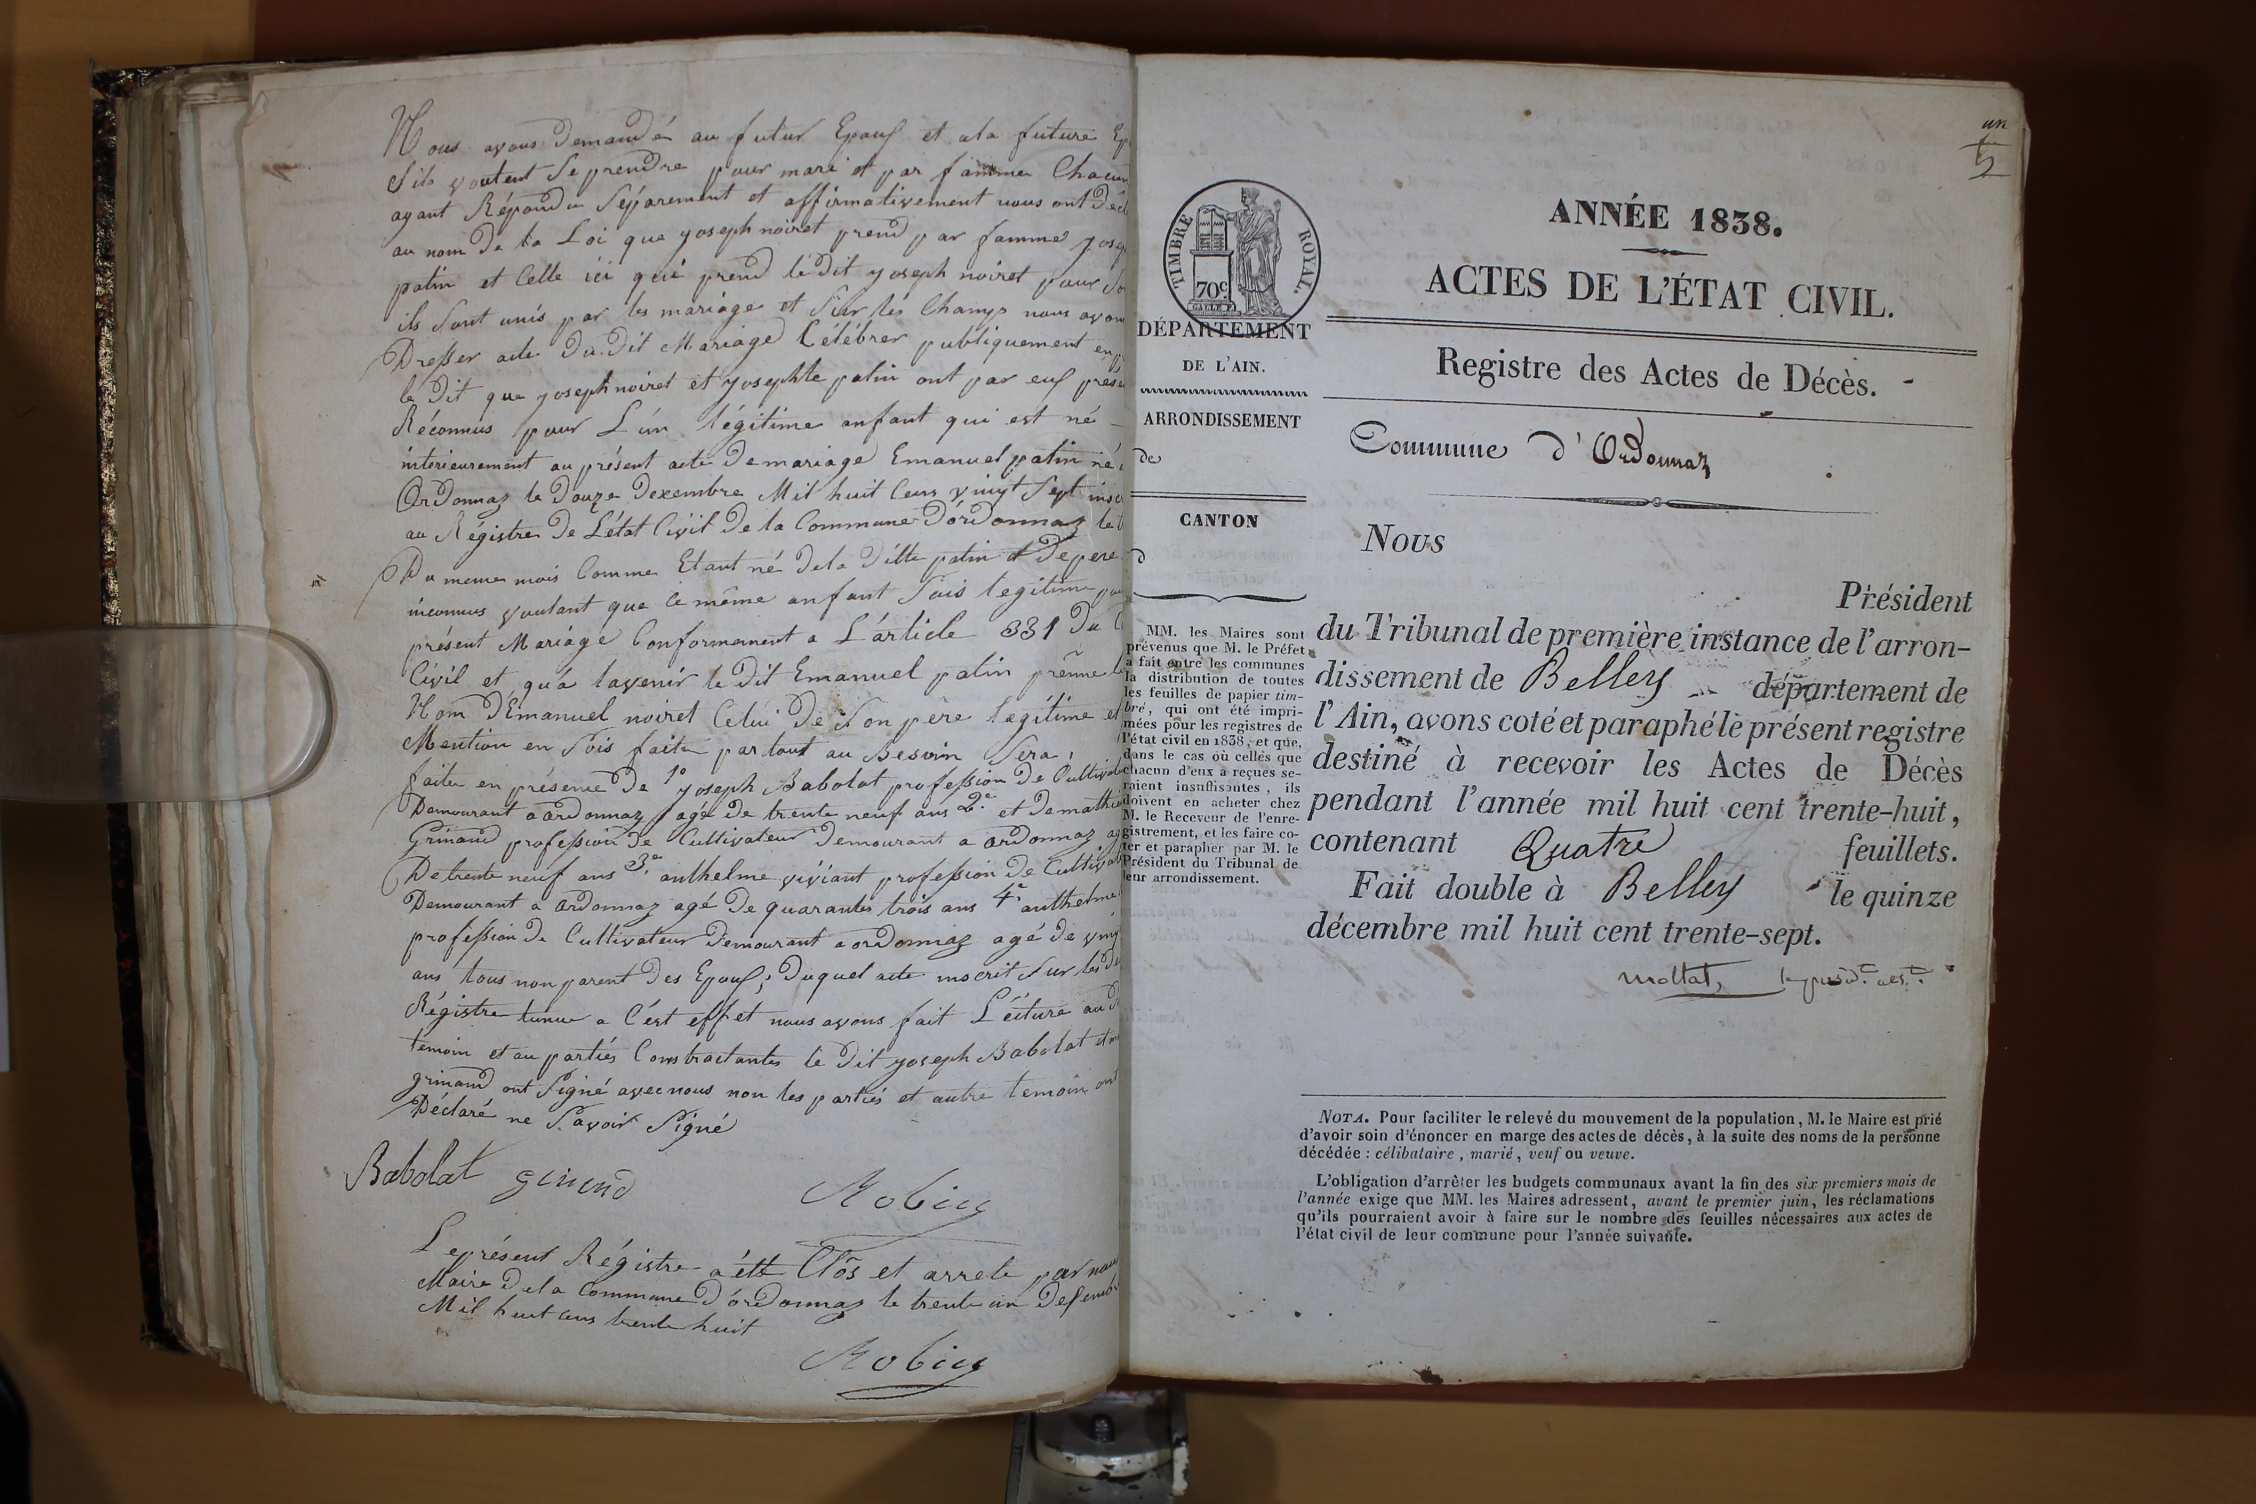 Nous avons demandé au futur Epouf et ala future Ep
S'ils voulent Se prendre pour mari et par famme Chacun
ayant Répondu Séparement et affirmativement nous ont Décl
au nom De la Loi que yoseph noiret prend par famme yosep
patin et Celle ici qui prend lé Dit yoseph noiret pour So
ils Sont unis par les mariage et Sur les Champs nous avon
Dresser acte Du Dit Mariage Célébrer publiquement en
le Dit que yoseph noiret et yosephte patin ont par euf prése
Réconnus pour L'un légitime anfant qui est né
interieurement au présent acte De mariage Emanuel patin né
Ordonnaz le Douze Dexembre Mil huit Cens vingt Sept insc
au Régistre De L'état Civil De la Commune D'ordonnaz le
Du meme mois Comme Etant né De la Ditte patin et De pere
inconnus voulant que Ce même anfant Sois legitime
présent Mariage Conformement a L'article 331 Du C
Civil et qu'a lavenir le Dit Emanuel patin prénne l
Nom D'Emanuel noiret Celui De Son père legitime et
Mention en Sois faite partout au Besoin Sera,
faite en présence De 1° yoseph Babolat profession De Cultivat
Demourant a ordonnaz agé De trente neuf ans 2e et De mathie
Grinand profession De Cultivateur Demourant a ordonnaz ag
De trente neuf ans 3e anthelme viviant profession De Cultivat
Demourant a ordonnaz agé De quarante trois ans 4e anthelme
profession De Cultivateur Demourant a ordonnaz agé De ving
ans tous non parent Des Epouf; Duquel acte inscrit Sur les De
Régistre tenue a C'ést effet nous avons fait Lécture au D
temoin et au parties Contractantes le Dit yoseph Babolat et m
grinand ont Signé avec nous non les parties et autre temoin ont
Déclaré ne Savoir Signé
Babolat
Le présent Régistre a étté Clôs et arrete par nous
Maire De la Commune D'ordonnaz le trente un Desembr
Mil huit cens trente huit
un
ANNÉE 1838.
ACTES DE L'ÉTAT CIVIL.
Registre des Actes de Décès.
Commune d'Ordonnaz
TIMBRE ROYAL.
70c
DÉPARTEMENT
DE L'AIN.
ARRONDISSEMENT
de
CANTON
d
MM. les Maires sont
prévenus que M. le Préfet
a fait entre les communes
la distribution de toutes
les feuilles de papier tim-
bré, qui ont été impri-
mées pour les registres de
l'état civil en 1838, et que,
dans le cas où celles que
chacun d'eux a reçues se-
raient insuffisantes, ils
doivent en acheter chez
M. le Receveur de l'enre-
gistrement, et les faire co-
ter et parapher par M. le
Président du Tribunal de
leur arrondissement.
Nous
Président
du Tribunal de première instance de l'arron-
dissement de Belley département de
l'Ain, avons coté et paraphé le présent registre
destiné à recevoir les Actes de Décès
pendant l'année mil huit cent trente-huit,
contenant Quatre feuillets.
Fait double à Belley le quinze
décembre mil huit cent trente-sept.
NOTA. Pour faciliter le relevé du mouvement de la population, M. le Maire est prié
d'avoir soin d'énoncer en marge des actes de décès, à la suite des noms de la personne
décédée : célibataire, marié, veuf ou veuve.
L'obligation d'arrêter les budgets communaux avant la fin des six premiers mois de
l'année exige que MM. les Maires adressent, avant le premier juin, les réclamations
qu'ils pourraient avoir à faire sur le nombre des feuilles nécessaires aux actes de
l'état civil de leur commune pour l'année suivante.